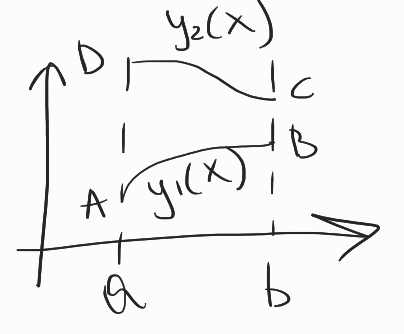 y₂(x)
D
C
B
y₁(x)
A
a
b